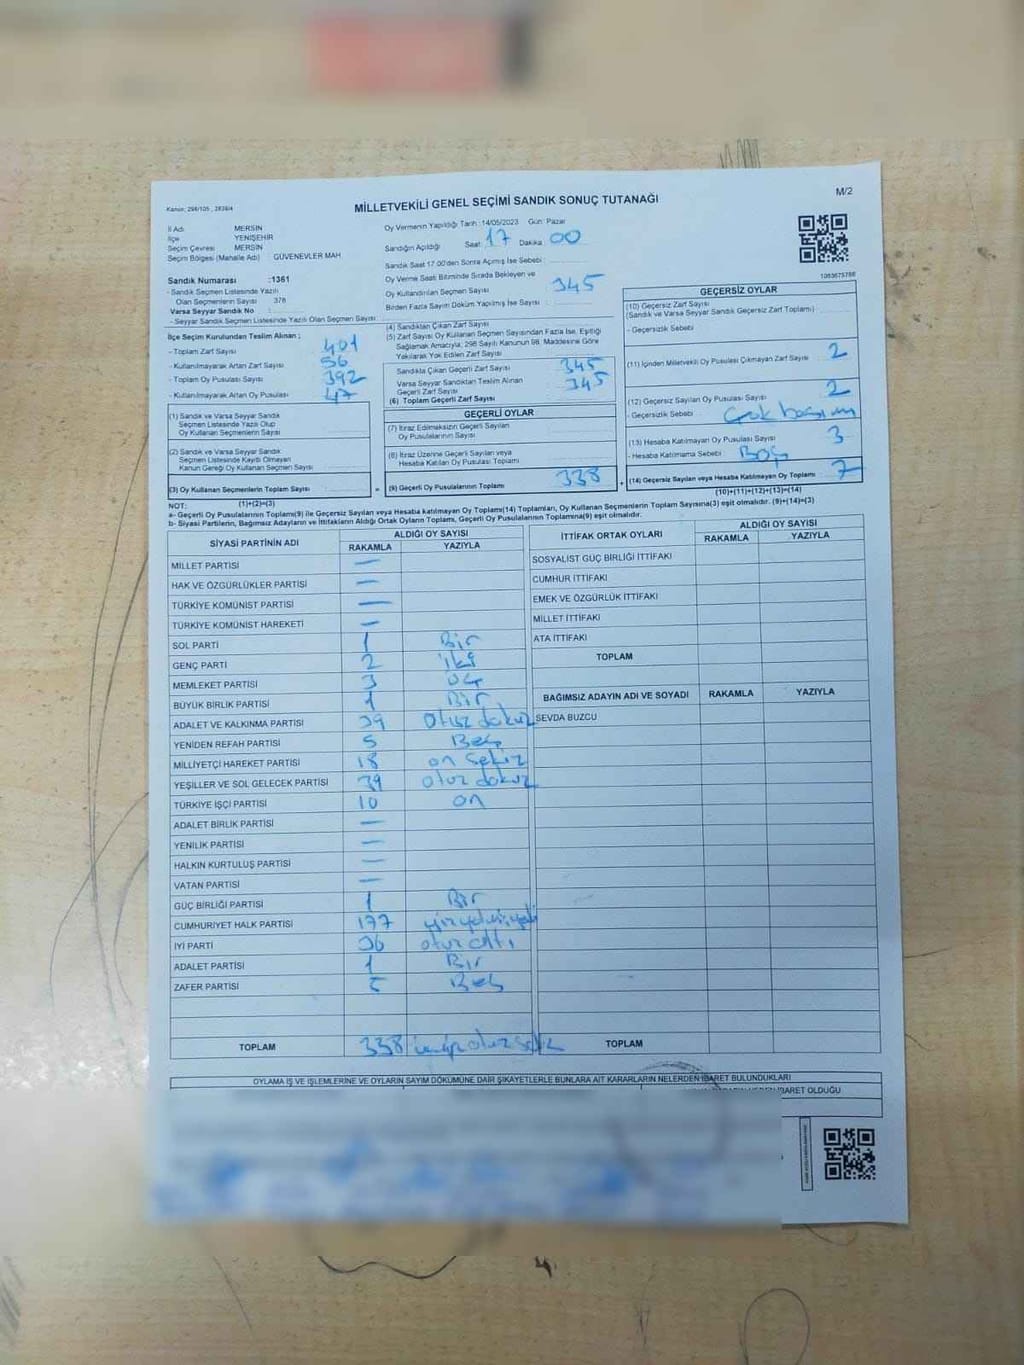 Kanun: 298/105 , 2839/4
MİLLETVEKİLİ GENEL SEÇİMİ SANDIK SONUÇ TUTANAĞI
M/2
İl Adı MERSİN
İlçe YENİŞEHİR
Seçim Çevresi MERSİN
Seçim Bölgesi (Mahalle Adı) GÜVENEVLER MAH
Sandık Numarası :1361
- Sandık Seçmen Listesinde Yazılı
Olan Seçmenlerin Sayısı 376
Varsa Seyyar Sandık No :
- Seyyar Sandık Seçmen Listesinde Yazılı Olan Seçmen Sayısı:
İlçe Seçim Kurulundan Teslim Alınan ;
- Toplam Zarf Sayısı 401
- Kullanılmayarak Artan Zarf Sayısı 56
- Toplam Oy Pusulası Sayısı 392
- Kullanılmayarak Artan Oy Pusulası 47
(1) Sandık ve Varsa Seyyar Sandık
Seçmen Listesinde Yazılı Olup
Oy Kullanan Seçmenlerin Sayısı
(2) Sandık ve Varsa Seyyar Sandık
Seçmen Listesinde Kayıtlı Olmayan
Kanun Gereği Oy Kullanan Seçmen Sayısı
(3) Oy Kullanan Seçmenlerin Toplam Sayısı
(1)+(2)=(3)
Oy Vermenin Yapıldığı Tarih : 14/05/2023 Gün: Pazar
Sandığın Açıldığı Saat: 17 Dakika 00
Sandık Saat 17.00'den Sonra Açılmış İse Sebebi :
Oy Verme Saati Bitiminde Sırada Bekleyen ve
Oy Kullandırılan Seçmen Sayısı 345
Birden Fazla Sayım Döküm Yapılmış İse Sayısı :
(4) Sandıktan Çıkan Zarf Sayısı
(5) Zarf Sayısı Oy Kullanan Seçmen Sayısından Fazla İse, Eşitliği
Sağlamak Amacıyla; 298 Sayılı Kanunun 98. Maddesine Göre
Yakılarak Yok Edilen Zarf Sayısı
Sandıkta Çıkan Geçerli Zarf Sayısı 345
Varsa Seyyar Sandıktan Teslim Alınan
Geçerli Zarf Sayısı 345
(6) Toplam Geçerli Zarf Sayısı
GEÇERLİ OYLAR
(7) İtiraz Edilmeksizin Geçerli Sayılan
Oy Pusulalarının Sayısı
(8) İtiraz Üzerine Geçerli Sayılan veya
Hesaba Katılan Oy Pusulası Toplamı
(9) Geçerli Oy Pusulalarının Toplamı 338
1083675786
GEÇERSİZ OYLAR
(10) Geçersiz Zarf Sayısı
(Sandık ve Varsa Seyyar Sandık Geçersiz Zarf Toplamı)
- Geçersizlik Sebebi
(11) İçinden Milletvekili Oy Pusulası Çıkmayan Zarf Sayısı 2
(12) Geçersiz Sayılan Oy Pusulası Sayısı 2
- Geçersizlik Sebebi Çok basım
(13) Hesaba Katılmayan Oy Pusulası Sayısı 3
- Hesaba Katılmama Sebebi Boş
(14) Geçersiz Sayılan veya Hesaba Katılmayan Oy Toplamı 7
(10)+(11)+(12)+(13)=(14)
NOT:
a- Geçerli Oy Pusulalarının Toplamı(9) ile Geçersiz Sayılan veya Hesaba Katılmayan Oy Toplamı(14) Toplamları, Oy Kullanan Seçmenlerin Toplam Sayısına(3) eşit olmalıdır. (9)+(14)=(3)
b- Siyasi Partilerin, Bağımsız Adayların ve İttifakların Aldığı Ortak Oyların Toplamı, Geçerli Oy Pusulalarının Toplamına(9) eşit olmalıdır.
SİYASİ PARTİNİN ADI ALDIĞI OY SAYISI
RAKAMLA YAZIYLA
MİLLET PARTİSİ —
HAK VE ÖZGÜRLÜKLER PARTİSİ —
TÜRKİYE KOMÜNİST PARTİSİ —
TÜRKİYE KOMÜNİST HAREKETİ —
SOL PARTİ 1 Bir
GENÇ PARTİ 2 iki
MEMLEKET PARTİSİ 3 üç
BÜYÜK BİRLİK PARTİSİ 1 Bir
ADALET VE KALKINMA PARTİSİ 39 Otuz dokuz
YENİDEN REFAH PARTİSİ 5 Beş
MİLLİYETÇİ HAREKET PARTİSİ 18 on sekiz
YEŞİLLER VE SOL GELECEK PARTİSİ 39 otuz dokuz
TÜRKİYE İŞÇİ PARTİSİ 10 on
ADALET BİRLİK PARTİSİ —
YENİLİK PARTİSİ —
HALKIN KURTULUŞ PARTİSİ —
VATAN PARTİSİ —
GÜÇ BİRLİĞİ PARTİSİ 1 Bir
CUMHURİYET HALK PARTİSİ 177 yüzyetmişyedi
İYİ PARTİ 36 otuz altı
ADALET PARTİSİ 1 Bir
ZAFER PARTİSİ 5 Beş
TOPLAM 338 üçyüz otuz sekiz
İTTİFAK ORTAK OYLARI ALDIĞI OY SAYISI
RAKAMLA YAZIYLA
SOSYALİST GÜÇ BİRLİĞİ İTTİFAKI
CUMHUR İTTİFAKI
EMEK VE ÖZGÜRLÜK İTTİFAKI
MİLLET İTTİFAKI
ATA İTTİFAKI
TOPLAM
BAĞIMSIZ ADAYIN ADI VE SOYADI RAKAMLA YAZIYLA
SEVDA BUZCU
TOPLAM
OYLAMA İŞ VE İŞLEMLERİNE VE OYLARIN SAYIM DÖKÜMÜNE DAİR ŞİKAYETLERLE BUNLARA AİT KARARLARIN NELERDEN İBARET BULUNDUKLARI
İBARET OLDUĞU